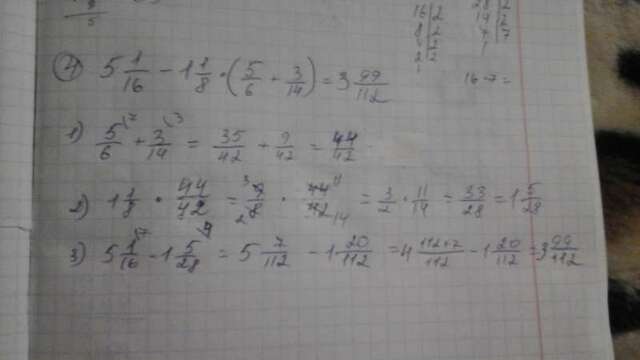 16|2 28|2
8|2 14|2
4|2 7|7
2|2 1
1
16·7=
4) 5 1/16 - 1 1/8 · (5/6 + 3/14) = 3 99/112
1) 5/6 + 3/14 = 35/42 + 9/42 = 44/42
2) 1 1/8 · 44/42 = 9/8 · 44/42 = 3/2 · 11/14 = 33/28 = 1 5/28
3) 5 1/16 - 1 5/28 = 5 7/112 - 1 20/112 = 4 112+7/112 - 1 20/112 = 3 99/112